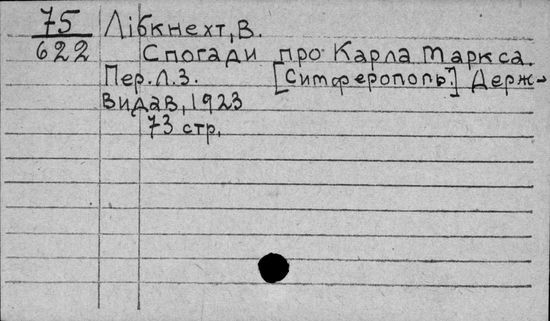 75 Лібкнехт, В.
622 Спогади про Карла Маркса.
Пер. Л.З. [Симферополь.] Держ-
видав, 1923
73 стр.